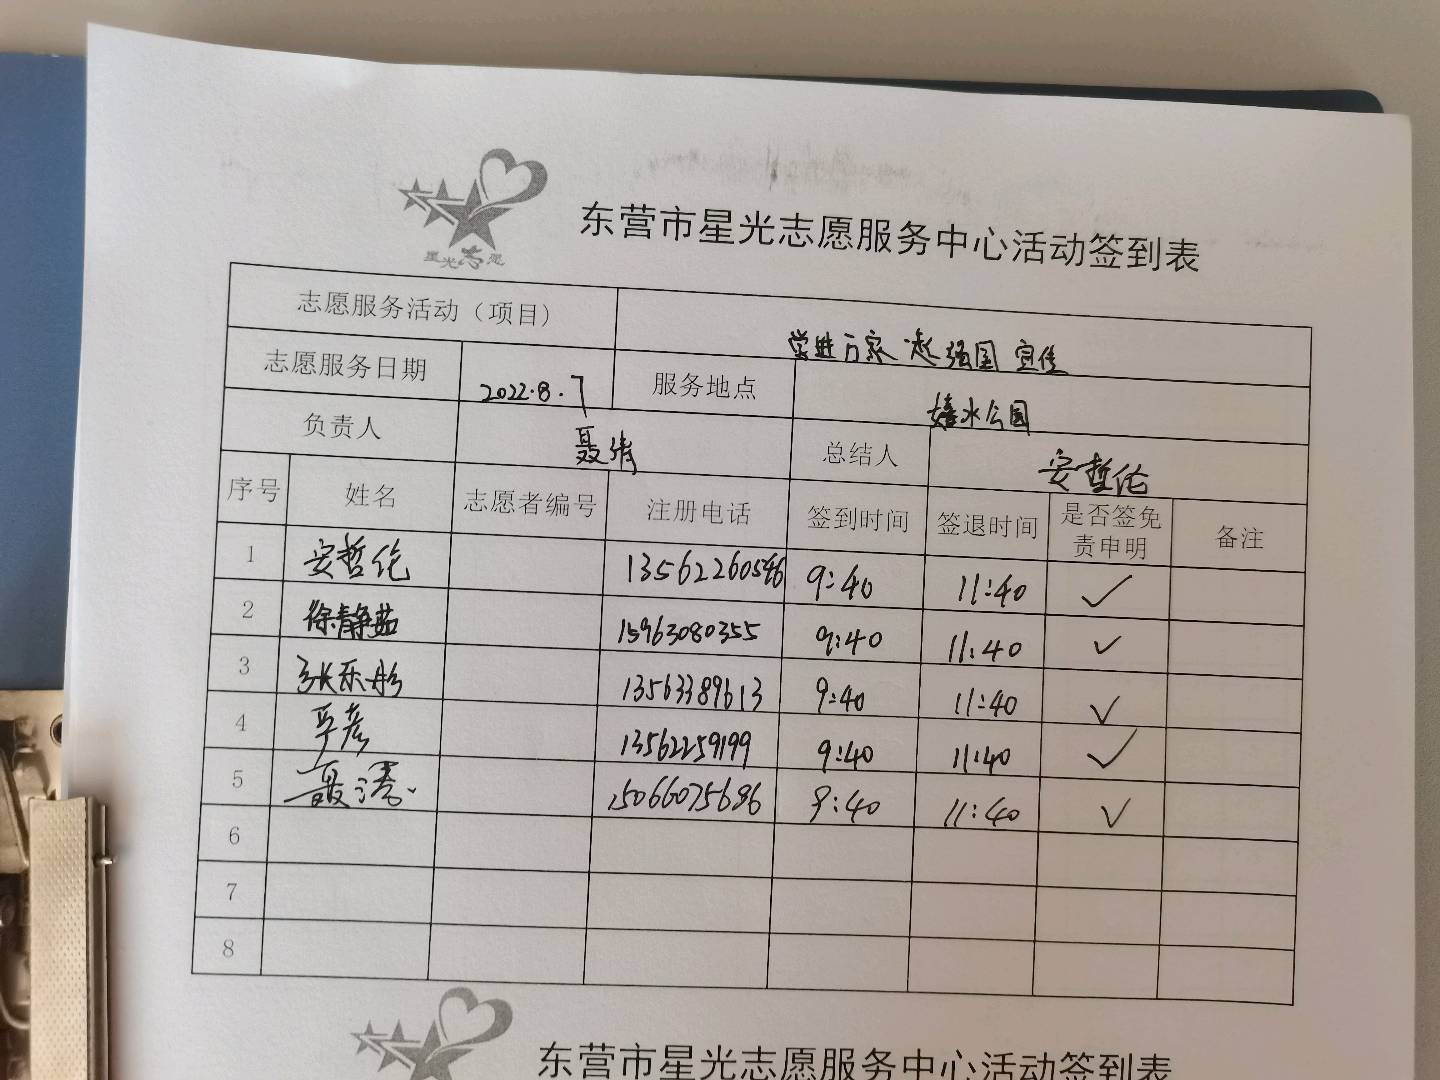 星光志愿
东营市星光志愿服务中心活动签到表
志愿服务活动（项目） 学进万家 志愿强国 宣传
志愿服务日期 2022.8.7 服务地点 公园
负责人 总结人 安哲伦
序号 姓名 志愿者编号 注册电话 签到时间 签退时间 是否签免责申明 备注
1 安哲伦 13562260546 9:40 11:40 ✓
2 徐静茹 15963080355 9:40 11:40 ✓
3 张乐彤 13563389613 9:40 11:40 ✓
4 13562259199 9:40 11:40 ✓
5 15066075686 9:40 11:40 ✓
6
7
8
东营市星光志愿服务中心活动签到表